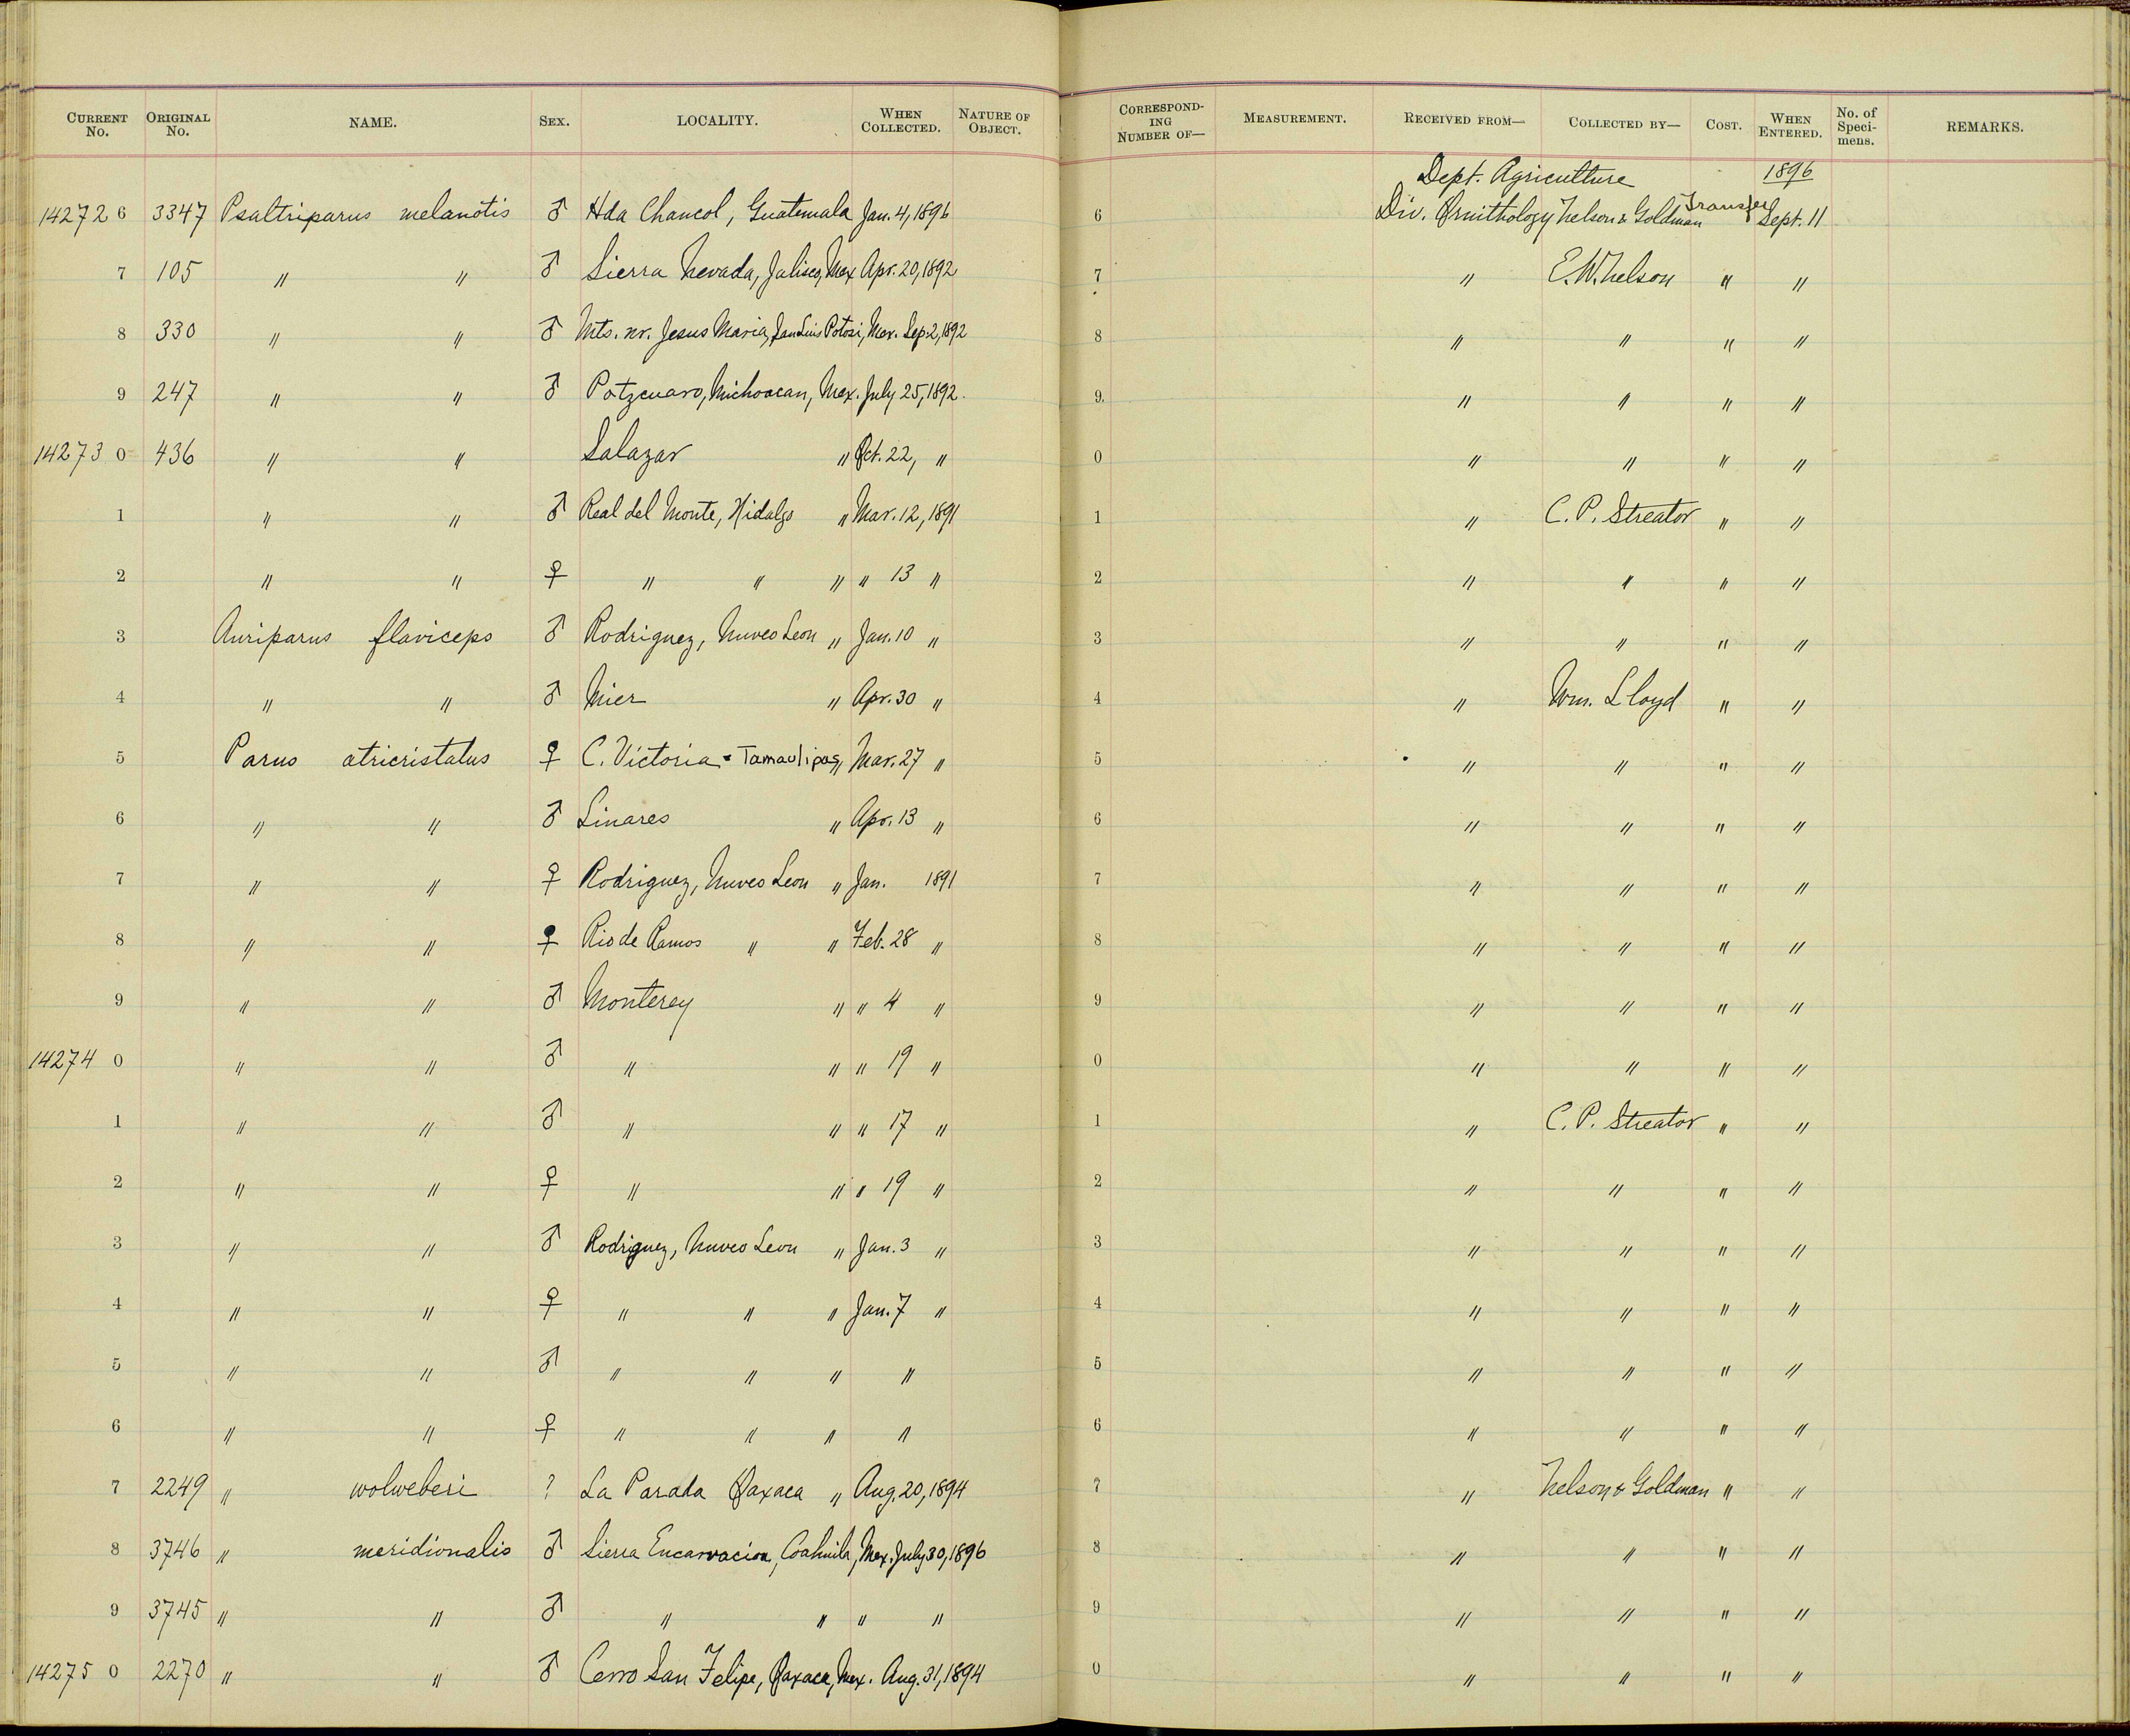 CURRENT No. ORIGINAL No. NAME. SEX. LOCALITY. WHEN COLLECTED. NATURE OF OBJECT. CORRESPONDING NUMBER OF— MEASUREMENT. RECEIVED FROM— COLLECTED BY— COST. WHEN ENTERED. No. of Specimens. REMARKS.
Dept. Agriculture 1896
14272 6 3347 Psaltriparus melanotis ♂ Hda Chancol, Guatemala Jan. 4, 1896 6 Div. Ornithology Nelson & Goldman Transfer Sept. 11
7 105 " " ♂ Sierra Nevada, Jalisco, Mex Apr. 20, 1892 7 " E.W. Nelson " "
8 330 " " ♂ Mts. nr. Jesus Maria, San Luis Potosi, Mex. Sep. 2, 1892 8 " " " "
9 247 " " ♂ Patzcuaro, Michoacan, Mex. July 25, 1892. 9. " " " "
14273 0 436 " " Salazar " Oct. 22, " 0 " " " "
1 " " ♂ Real del Monte, Hidalgo " Mar. 12, 1891 1 " C. P. Streator " "
2 " " ♀ " " " " 13 " 2 " " " "
3 Auriparus flaviceps ♂ Rodriguez, Nuveo Leon " Jan. 10 " 3 " " " "
4 " " ♂ Mier " Apr. 30 " 4 " Wm. Lloyd " "
5 Parus atricristatus ♀ C. Victoria - Tamaulipas " Mar. 27 " 5 " " " "
6 " " ♂ Linares " Apr. 13 " 6 " " " "
7 " " ♀ Rodriguez, Nuveo Leon " Jan. 1891 7 " " " "
8 " " ♀ Rio de Ramos " " Feb. 28 " 8 " " " "
9 " " ♂ Monterey " " 4 " 9 " " " "
14274 0 " " ♂ " " " 19 " 0 " " " "
1 " " ♂ " " " 17 " 1 " C. P. Streator " "
2 " " ♀ " " " 19 " 2 " " " "
3 " " ♂ Rodriguez, Nuveo Leon " Jan. 3 " 3 " " " "
4 " " ♀ " " " Jan. 7 " 4 " " " "
5 " " ♂ " " " " 5 " " " "
6 " " ♀ " " " " 6 " " " "
7 2249 " wolweberi ? La Parada Oaxaca " Aug. 20, 1894 7 " Nelson & Goldman " "
8 3746 " meridionalis ♂ Sierra Encarnacion, Coahuila, Mex. July 30, 1896 8 " " " "
9 3745 " " ♂ " " " " 9 " " " "
14275 0 2270 " " ♂ Cerro San Felipe, Oaxaca, Mex. Aug. 31, 1894 0 " " " "